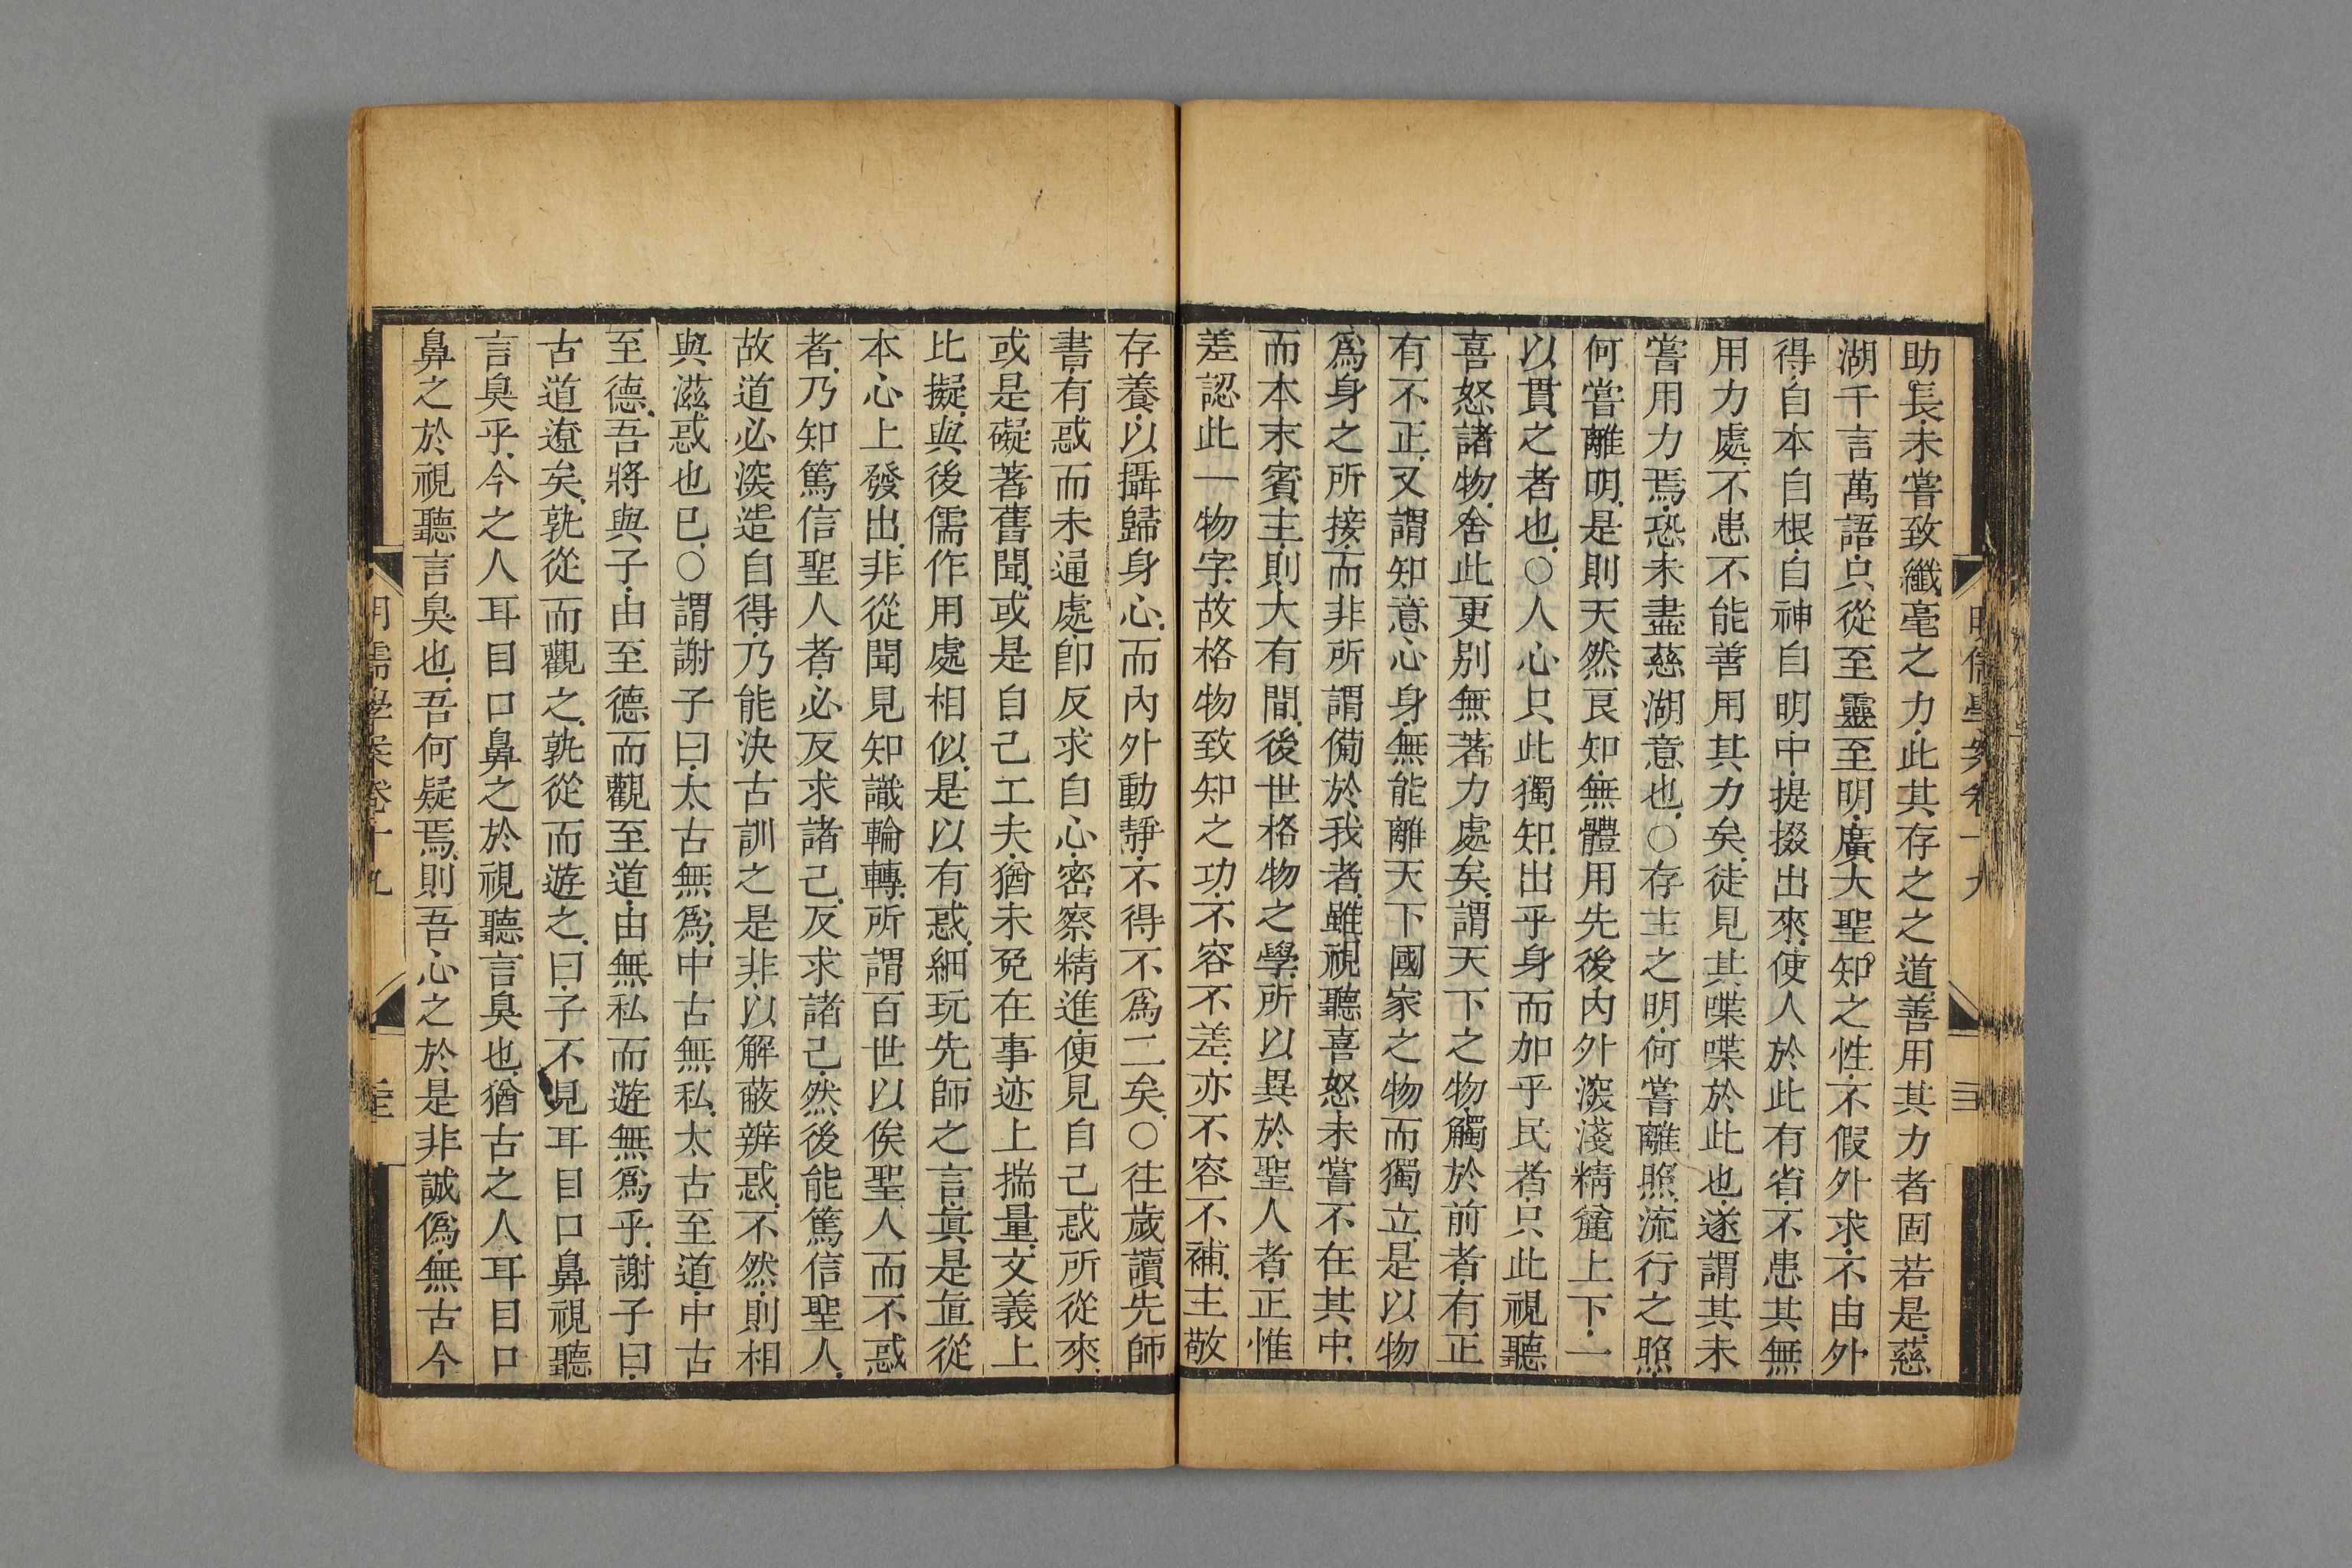 助長未嘗致纖毫之力此其存之之道善用其力者固若是慈
湖千言萬語只從至靈至明廣大聖知之性不假外求不由外
得自本自根自神自明中提掇出來使人於此有省不患其無
用力處不患不能善用其力矣徒見其喋喋於此也遂謂其未
嘗用力焉恐未盡慈湖意也○存主之明何嘗離照流行之照
何嘗離明是則天然良知無體用先後内外深淺精麄上下一
以貫之者也○人心只此獨知出乎身而加乎民者只此視聽
喜怒諸物舍此更别無著力處矣謂天下之物觸於前者有正
有不正又謂知意心身無能離天下國家之物而獨立是以物
爲身之所接而非所謂備於我者雖視聽喜怒未嘗不在其中
而本末賓主則大有間後世格物之學所以異於聖人者正惟
差認此一物字故格物致知之功不容不差亦不容不補主敬
存養以攝歸身心而內外動靜不得不爲二矣○往歲讀先師
書有惑而未通處卽反求自心密察精進便見自己惑所從來
或是礙著舊聞或是自己工夫猶未免在事迹上揣量文義上
比擬與後儒作用處相似是以有惑細玩先師之言真是直從
本心上發出非從聞見知識輪轉所謂百世以俟聖人而不惑
者乃知篤信聖人者必反求諸己反求諸己然後能篤信聖人
故道必深造自得乃能決古訓之是非以解蔽辨惑不然則相
與滋惑也已○謂謝子曰太古無爲中古無私太古至道中古
至德吾將與子由至德而觀至道由無私而遊無爲乎謝子曰
古道遼矣孰從而觀之孰從而遊之曰子不見耳目口鼻視聽
言臭乎今之人耳目口鼻之於視聽言臭也猶古之人耳目口
鼻之於視聽言臭也吾何疑焉則吾心之於是非誠僞無古今
明儒學案卷十九